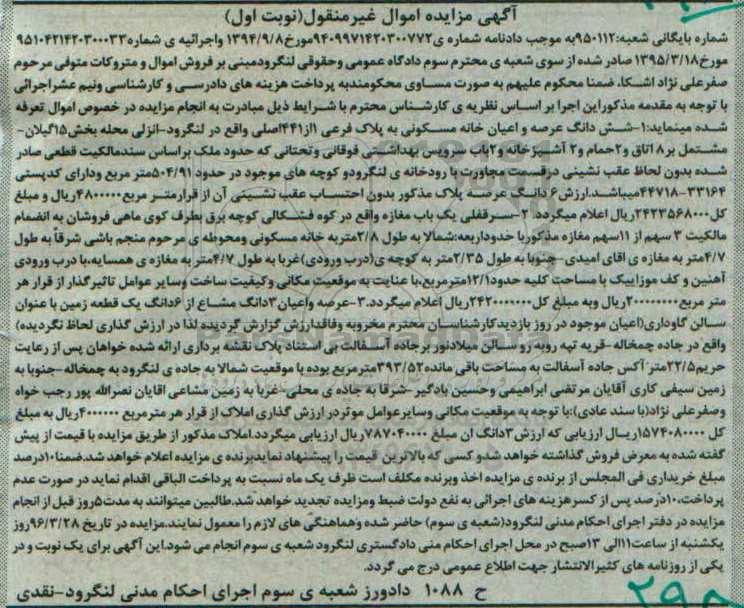 آگهی مزایده اموال غیرمنقول(نوبت اول)
شماره بایگانی شعبه:۹۵۰۱۱۲به موجب دادنامه شماره ی۹۴۰۹۹۷۱۴۲۰۳۰۰۷۷۲مورخ۱۳۹۴/۹/۸ واجرائیه ی شماره۹۵۱۰۴۲۱۴۲۰۳۰۰۰۳۳
مورخ۱۳۹۵/۳/۱۸ صادر شده از سوی شعبه ی محترم سوم دادگاه عمومی وحقوقی لنگرودمبنی بر فروش اموال و متروکات متوفی مرحوم
صفرعلی نژاد اشکا، ضمنا محکوم علیهم به صورت مساوی محکومندبه پرداخت هزینه های دادرسی و کارشناسی ونیم عشراجرائی
با توجه به مقدمه مذکوراین اجرا بر اساس نظریه ی کارشناس محترم با شرایط ذیل مبادرت به انجام مزایده در خصوص اموال تعرفه
شده مینماید:۱-شش دانگ عرصه و اعیان خانه مسکونی به پلاک فرعی ۱از۴۴۱اصلی واقع در لنگرود-انزلی محله بخش۱۵گیلان-
مشتمل بر۸ اتاق و۲حمام و۲ آشپزخانه و۲باب سرویس بهداشتی فوقانی وتحتانی که حدود ملک براساس سندمالکیت قطعی صادر
شده بدون لحاظ عقب نشینی درقسمت مجاورت با رودخانه ی لنگرودو کوچه های موجود در حدود ۵۰۴/۹۱متر مربع ودارای کدپستی
۴۴۷۱۸-۳۳۱۶۴میباشد.ارزش۶ دانگ عرصه پلاک مذکور بدون احتساب عقب نشینی آن از قرارمتر مربع۴۸۰۰۰۰۰ریال و مبلغ
کل۲۴۲۳۵۶۸۰۰۰ریال اعلام میگردد. ۲-سرقفلی یک باب مغازه واقع در کوه فشکالی کوچه برق بطرف کوی ماهی فروشان به انضمام
مالکیت ۳ سهم از ۱۱سهم مغازه مذکوربا حدوداربعه:شمالا به طول ۲/۸متربه خانه مسکونی ومحوطه ی مرحوم منجم باشی شرقا به طول
۴/۷متر به مغازه ی اقای امیدی-جنوبا به طول ۲/۳۵متر به کوچه ی(درب ورودی)غربا به طول ۴/۷متر به مغازه ی همسایه،با درب ورودی
آهنین و کف موزاییک با مساحت کلیه حدود۱۲/۱مترمربع،با عنایت به موقعیت مکانی وکیفیت ساخت وسایر عوامل تاثیرگذار از قرار هر
متر مربع۲۰۰۰۰۰۰۰ریال وبه مبلغ کل۲۴۲۰۰۰۰۰۰ریال اعلام میگردد.۳-عرصه واعیان۳دانگ مشاع از ۶دانگ یک قطعه زمین با عنوان
سالن گاوداری(اعیان موجود در روز بازدیدکارشناسان محترم مخروبه وفاقدارزش گزارش گردیده لذا در ارزش گذاری لحاظ نگردیده)
واقع در جاده چمخاله-قریه تپه روبه رو سالن میلادنور برجاده آسفالت بی استناد پلاک نقشه برداری ارائه شده خواهان پس از رعایت
حریم۲۲/۵متر آکس جاده آسفالت به مساحت باقی مانده۳۹۳/۵۲مترمربع بوده با موقعیت شمالا به جاده ی لنگرود به چمخاله-جنوبا به
زمین سیفی کاری آقایان مرتضی ابراهیمی وحسین یادگیر-شرقا به جاده ی محلی-غربا به زمین مشاعی اقایان نصرالله پور رجب خواه
وصفرعلی نژاد(با سند عادی):با توجه به موقعیت مکانی وسایرعوامل موثردر ارزش گذاری املاک از قرار هر مترمربع ۴۰۰۰۰۰۰ریال به مبلغ
کل ۱۵۷۴۰۸۰۰۰۰ریال ارزیابی که ارزش۳دانگ ان مبلغ ۷۸۷۰۴۰۰۰۰ریال ارزیابی میگردد.املاک مذکور از طریق مزایده با قیمت از پیش
گفته شده به معرض فروش گذاشته خواهد شدو کسی که بالاترین قیمت را پیشنهاد نمایدبرنده ی مزایده اعلام خواهد شد.ضمنا۱۰درصد
مبلغ خریداری فی المجلس از برنده ی مزایده اخذ وبرنده مکلف است ظرف یک ماه نسبت به پرداخت الباقی اقدام نماید در صورت عدم
پرداخت،۱۰درصد پس از کسر هزینه های اجرائی به نفع دولت ضبط ومزایده تجدید خواهد شد.طالبین میتوانند به مدت۵روز قبل از انجام
مزایده در دفتر اجرای احکام مدنی لنگرود(شعبه ی سوم) حاضر شده وهماهنگی های لازم را معمول نمایند.مزایده در تاریخ ۹۶/۳/۲۸روز
یکشنبه از ساعت۱۱الی ۱۳صبح در محل اجرای احکام منی دادگستری لنگرود شعبه ی سوم انجام می شود.این آگهی برای یک نوبت و در
یکی از روزنامه های کثیرالانتشار جهت اطلاع عمومی درج می گردد.
ح ۱۰۸۸ دادورز شعبه ی سوم اجرای احکام مدنی لنگرود-نقدی